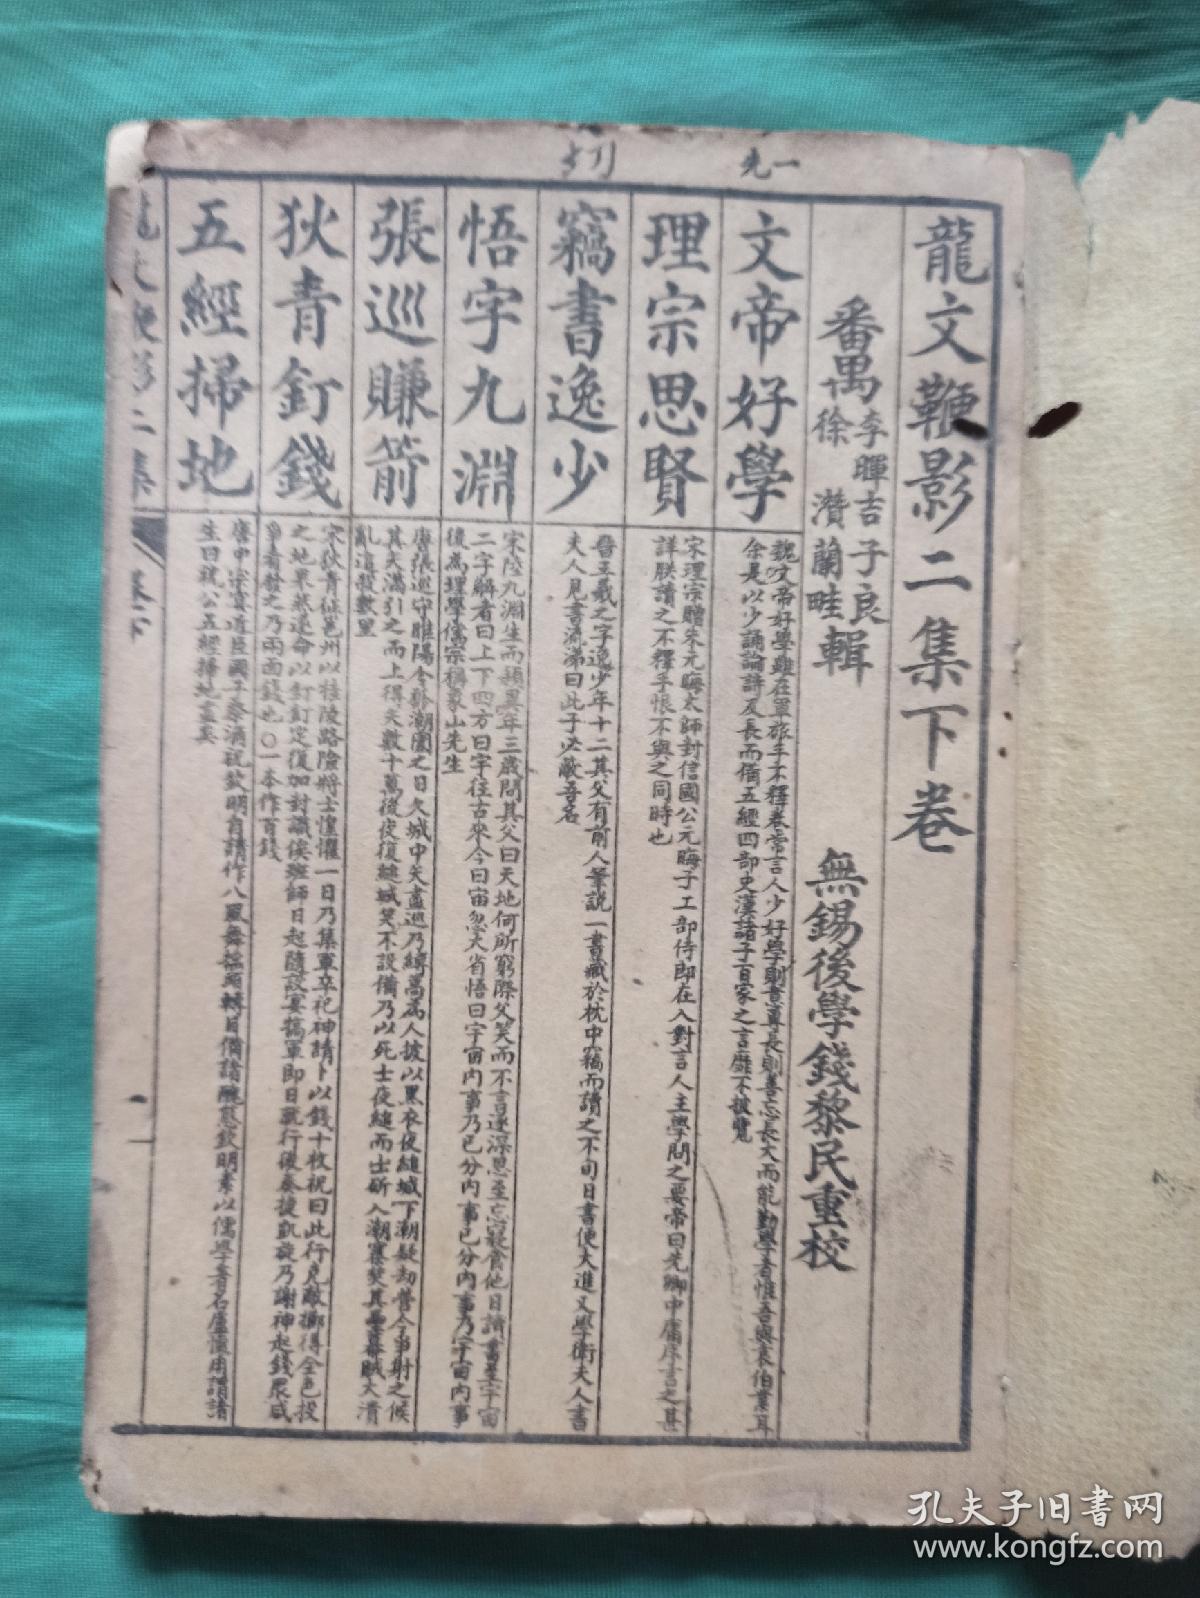 一先
龍文鞭影二集下卷
番禺
李暉吉子良
徐灒蘭畦
輯
無錫後學錢黎民重校
文帝好學
魏文帝好學雖在軍旅手不釋卷常言人少好學則意專長則善忘長大而能勤學者惟吾與袁伯業耳
余是以少誦論詩及長而備五經四部史漢諸子百家之言靡不披覽
理宗思賢
宋理宗贈朱元晦太師封信國公元晦子工部侍郎在入對言人主學問之要帝曰先卿中庸序言之甚
詳朕讀之不釋手恨不與之同時也
竊書逸少
晉王羲之字逸少年十二其父有前人筆說一書藏於枕中竊而讀之不旬日書便大進又學衛夫人書
夫人見書流涕曰此子必蔽吾名
悟字九淵
宋陸九淵生而穎異年三歲問其父曰天地何所窮際父笑而不言遂深思至忘寢食他日讀書至宇宙
二字解者曰上下四方曰宇往古來今曰宙忽大省悟曰宇宙內事乃己分內事己分內事乃宇宙內事
後為理學儒宗稱象山先生
張巡賺箭
唐張巡守睢陽令狐潮圍之日久城中矢盡巡乃縛蒿為人披以黑衣夜縋城下潮疑劫營令爭射之候
其矢滿引之而上得矢數十萬後夜復縋賊笑不設備乃以死士夜縋而士斫入潮寨焚其壘幕賊大潰
亂追殺數里
狄青釘錢
宋狄青征邕州以桂陵路險將士惶懼一日乃集軍卒祀神請卜以錢十枚祝曰此行克敵擲得全色投
之地果然遂命以釘釘定復加封識俟班師日起隨設宴犒軍即日就行後奏捷凱旋乃謝神起錢眾咸
爭看發之乃兩面錢也〇一本作百錢
五經掃地
唐中宗宴近臣國子祭酒祝欽明自請作八風舞搖頭轉目備諸醜態欽明素以儒學著名盧藏用謂諸
生曰祝公五經掃地盡矣
龍文鞭影二集
卷下
一
孔夫子旧书网
www.kongfz.com